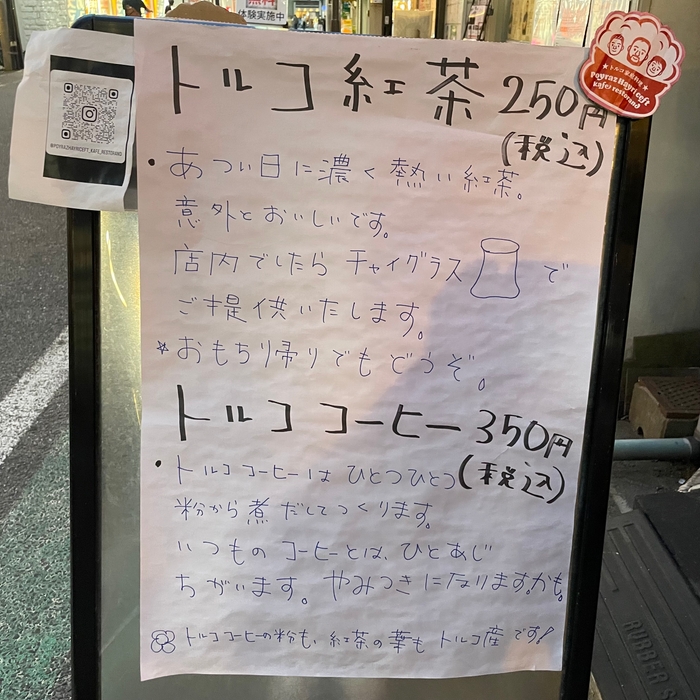 体験実施中
トルコ紅茶 250円
(税込)
・あつい日に濃く熱い紅茶。
意外とおいしいです。
店内でしたら チャイグラス で
ご提供いたします。
☆おもち帰りでもどうぞ。
トルココーヒー 350円
(税込)
・トルココーヒーは ひとつひとつ
粉から煮だしてつくります。
いつものコーヒーとは、ひとあじ
ちがいます。やみつきになりますかも。
トルココーヒーの粉も、紅茶の葉も トルコ産です!
@POYRAZHAYRICEFT_KAFE_RESTORAND
★トルコ家庭料理★
Poyraz Hayriceft
kafe restorand
RUBBER S